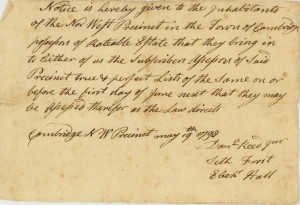 Notice is hereby given to the Inhabitants
of the Nor West Precinct in the Town of Cambridge
possessors of Rateable Estate that they bring in
to Either of us the Subscribers Assessors of Said
Precinct true & perfect Lists of the Same on or
before the first day of June next that they may
be Assessed therefor as the Law directs
Cambridge N W Precinct may 19th
Danl Reed jur
Seth Frost
Ebenr Hall